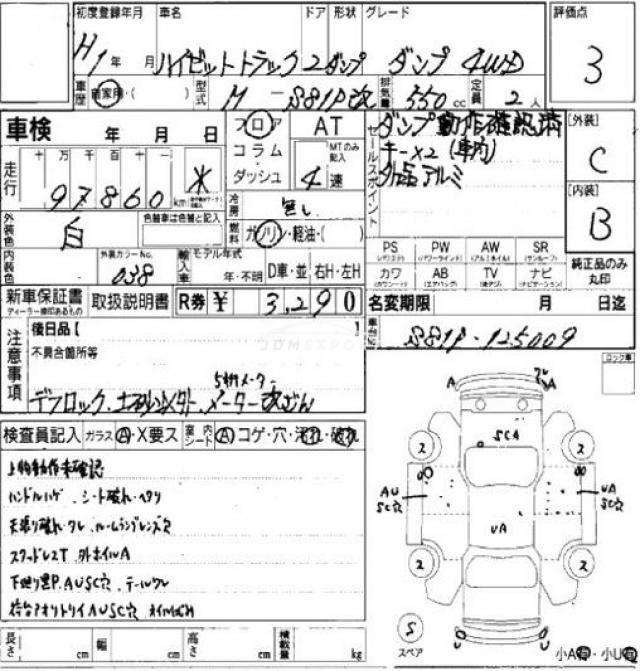 初度登録年月 車名 ドア 形状 グレード 評価点
H1年 月 ハイゼットトラック 2 ダンプ ダンプ 4WD 3
車歴 自家用・( ) 型式 M-S81P改 排気量 550cc 定員 2人
車検 年 月 日
フロア AT
コラム MTのみ記入
ダッシュ 4速
セールスポイント
ダンプ動作確認済
キー×2 (車内)
外品アルミ
[外装]
C
[内装]
B
走行 十万千百十一
97860km *
冷房 無し
外装色 白 色替車は色替と記入
燃料 ガソリン・軽油・( )
内装色 外装カラーNo. 038
輸入車 モデル年式 年・不明 D車・並 右H・左H
PS PW AW SR
カワ AB TV ナビ
純正品のみ丸印
新車保証書 取扱説明書 R券 ¥ 3,290
ディーラー捺印あるもの
名変期限 月 日迄
車台No. S81P-125009
注意事項
後日品【 】
不具合箇所等
5桁メーター
デフロック、メーター改ざん
ロック車
検査員記入 ガラス A・X要ス 室内シート A コゲ・穴・汚れ・破れ
上物動作未確認
ハンドルハゲ、シート破れ・ヘタリ
天張り破れ・タレ、ルームランプレンズ欠
スタッドレスT、外ホイルA
下廻り黒P、AUSC穴、テールワレ
荷台アオリトリイAUSC穴
A A
2 2
SCA
AU
SC穴
UA
SC穴
UA
2 2
S
スペア
小A有・小U有
長さ cm 幅 cm 高さ cm 積載量 kg